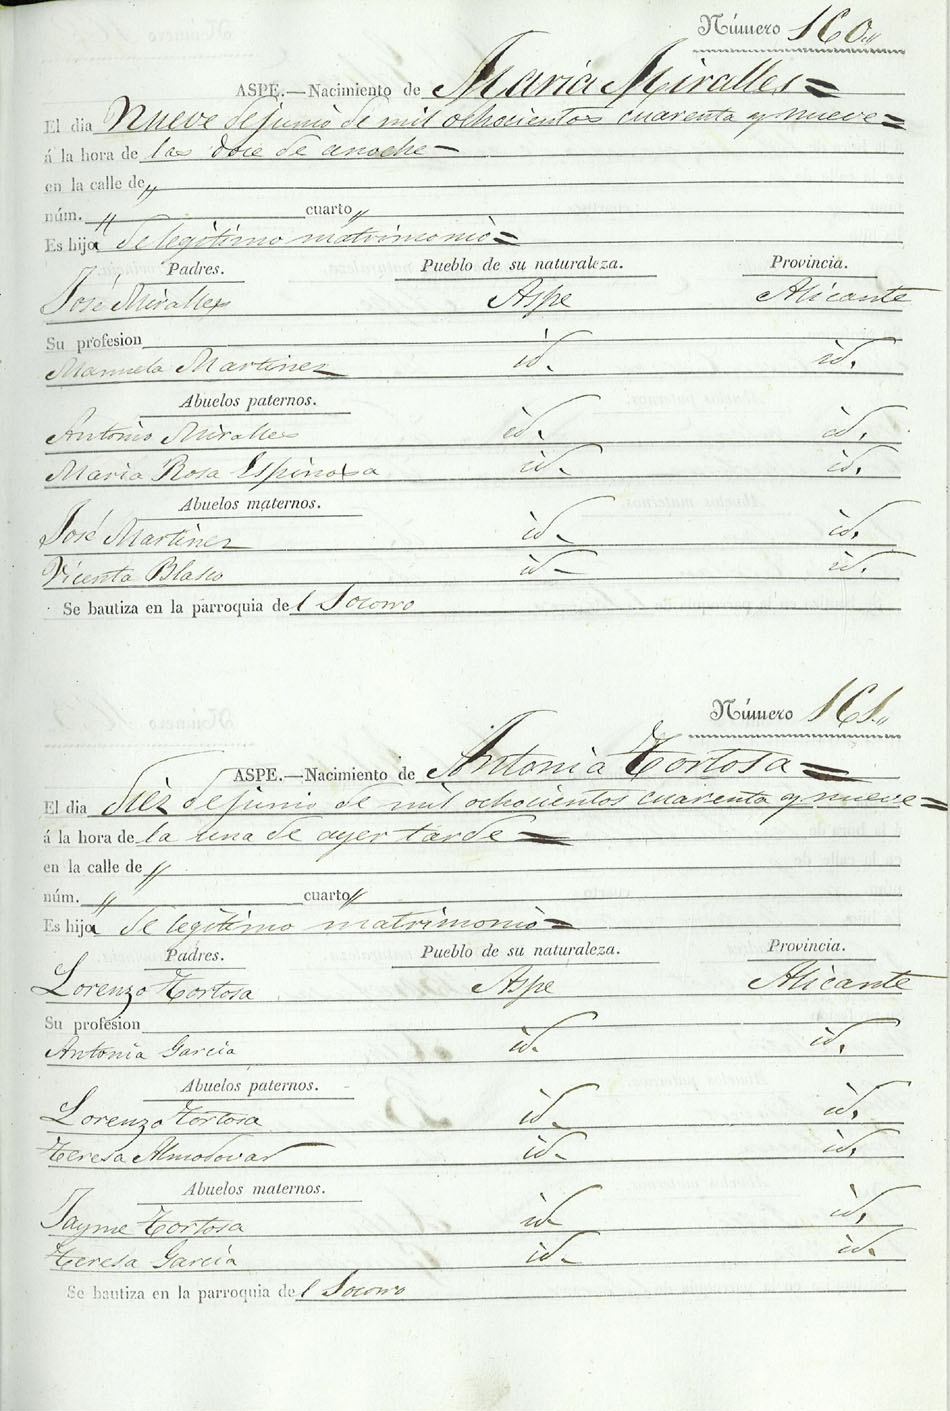 Número 160„
ASPE.—Nacimiento de Maria Miralles=
El dia Nueve de junio de mil ochocientos cuarenta y nueve=
á la hora de las doce de anoche-
en la calle de „
núm. „ cuarto „
Es hija de legitimo matrimonio=
Padres. Pueblo de su naturaleza. Provincia.
José Miralles Aspe Alicante
Su profesion
Manuela Martinez id. id.
Abuelos paternos.
Antonio Miralles id. id.
Maria Rosa Espinosa id. id.
Abuelos maternos.
José Martinez id. id.
Vicenta Blasco id. id.
Se bautiza en la parroquia del Socorro
Número 161„
ASPE.—Nacimiento de Antonia Tortosa=
El dia Diez de junio de mil ochocientos cuarenta y nueve=
á la hora de la una de ayer tarde=
en la calle de „
núm. „ cuarto „
Es hija de legitimo matrimonio=
Padres. Pueblo de su naturaleza. Provincia.
Lorenzo Tortosa Aspe Alicante
Su profesion
Antonia Garcia id. id.
Abuelos paternos.
Lorenzo Tortosa id. id.
Teresa Almodovar id. id.
Abuelos maternos.
Jayme Tortosa id. id.
Teresa Garcia id. id.
Se bautiza en la parroquia del Socorro